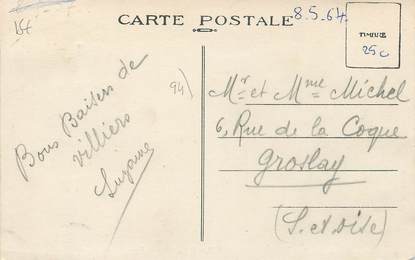 15t
CARTE POSTALE
8.5.64.
TIMBRE
25c
94)
Bons Baisers de
Villiers
Suzanne
Mr et Mme Michel
6, Rue de la Coque
Groslay
(S. et Oise)